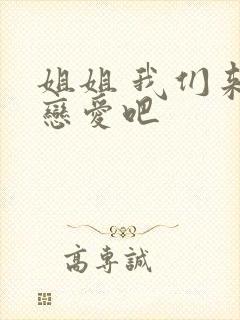 姐姐我们来
戀爱吧
高專誠